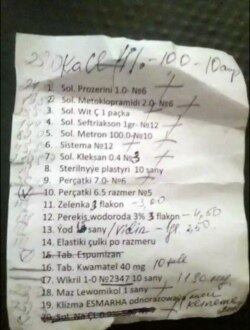 KaCl 4% -100-10amp
1. Sol. Prozerini 1.0- №6
2. Sol. Metoklopramidi 2.0- №6
3. Sol. Wit Ç 1 paçka
4. Sol. Seftriakson 1gr- №12
5. Sol. Metron 100.0-№10
6. Sistema №12
7. Sol. Kleksan 0.4 № 3
8. Sterilnyýe plastyri 10 sany
9. Perçatki 7.0- №6
10. Perçatki 6.5 razmer №5
11. Zelenka 1 flakon -3,00
12. Perekis wodoroda 3% 3 flakon -4,50
13. Ýod sany
14. Elastiki çulki po razmeru
15. Tab. Espumizan
16. Tab. Kwamatel 40 mg 10
17. Wikril 1-0 №2347 10 sany
18. Maz Lewomikol 1 sany
19. Klizma ESMARHA odnorazowaýa
20. Sol. Na CL 0.